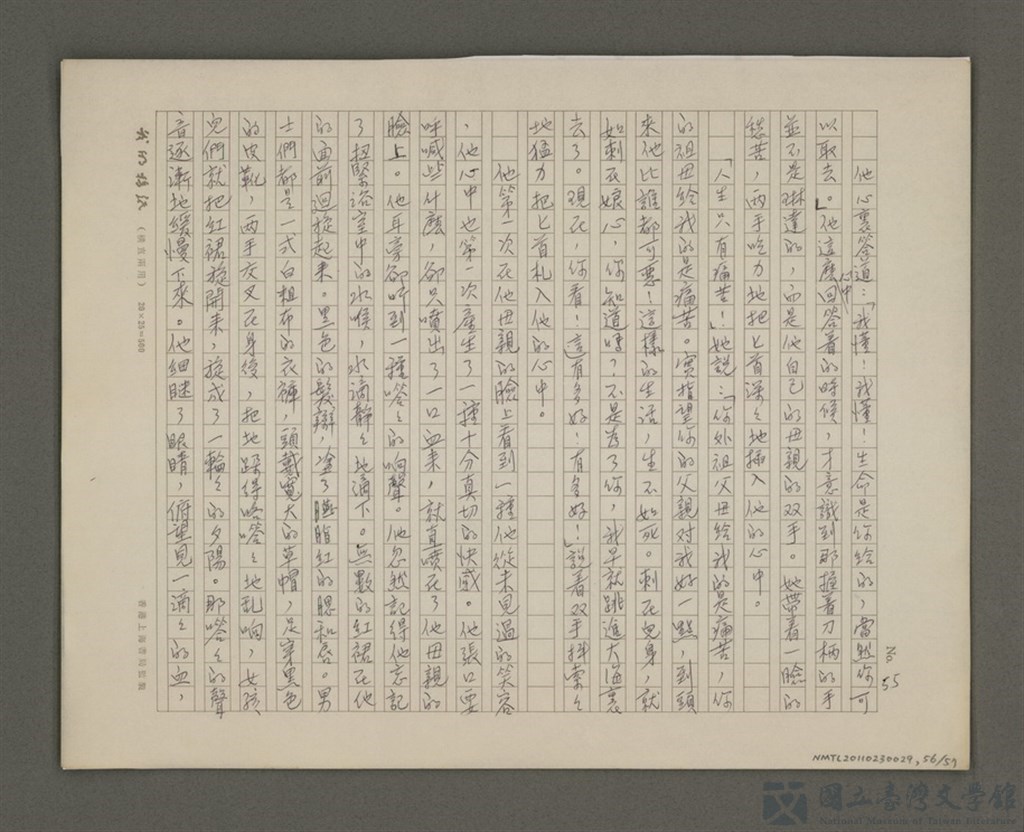 他心裏答道：「我懂！我懂！生命是你給的，當然你可
以取去」。他這麼心中回答着的時候，才意識到那握着刀柄的手
並不是琳達的，而是他自己的母親的双手。她帶着一臉的
愁苦，兩手吃力地把匕首深々地插入他的心中。
「人生只有痛苦！」她說：「你外祖父母給我的是痛苦，你
的祖母給我的是痛苦。實指望你的父親對我好一點，到頭
來他比誰都可惡！這樣的生活，生不如死。刺在兒身，就
如刺在娘心，你知道嗎？不是為了你，我早就跳進大海裏
去了。現在，你看！這有多好！有多好！」說着双手抖索々
地猛力把匕首札入他的心中。
他第一次在他母親的臉上看到一種他從未見過的笑容
，他心中也第一次產生了一種十分真切的快感。他張口要
呼喊些什麼，卻只噴出了一口血来，就直噴在了他母親的
臉上。他耳旁卻听到一種嗒々的响聲。他忽然記得他忘記
了扭緊浴室中的水喉，水滴靜々地滴下。無數的紅裙在他
的面前迴旋起来。黑色的髮辮，塗了胭脂紅的腮和唇。男
士們都是一式白粗布的衣褲，頭戴寬大的草帽，足穿黑色
的皮靴，兩手交叉在身後，把地跺得咯嗒々地乱响，女孩
兒們就把紅裙旋開来，旋成了一輪々的夕陽。那嗒々的聲
音逐漸地緩慢下來。他細瞇了眼睛，俯望見一滴々的血，
No 55
（橫直兩用） 20×25=500
香港上海書局監製
NMTL20110230029,56/59
國立臺灣文學館
National Museum of Taiwan Literature